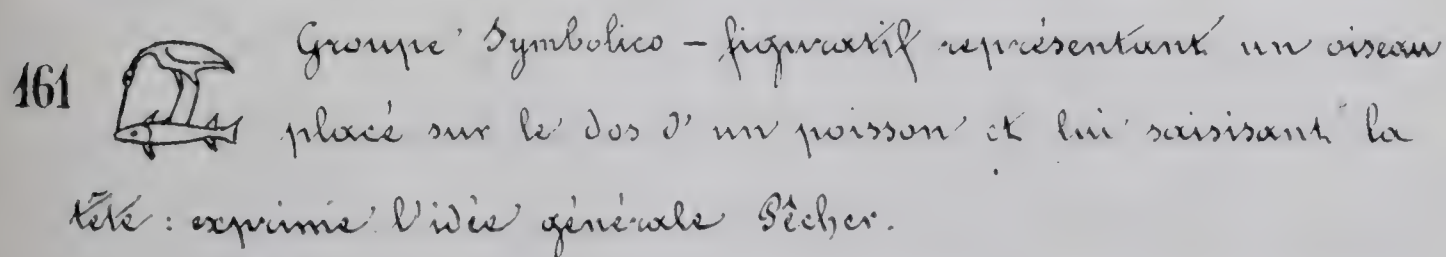 161 Groupe Symbolico – figuratif représentant un oiseau
placé sur le dos d'un poisson et lui saisisant la
tête : exprime l'idée générale Pêcher.